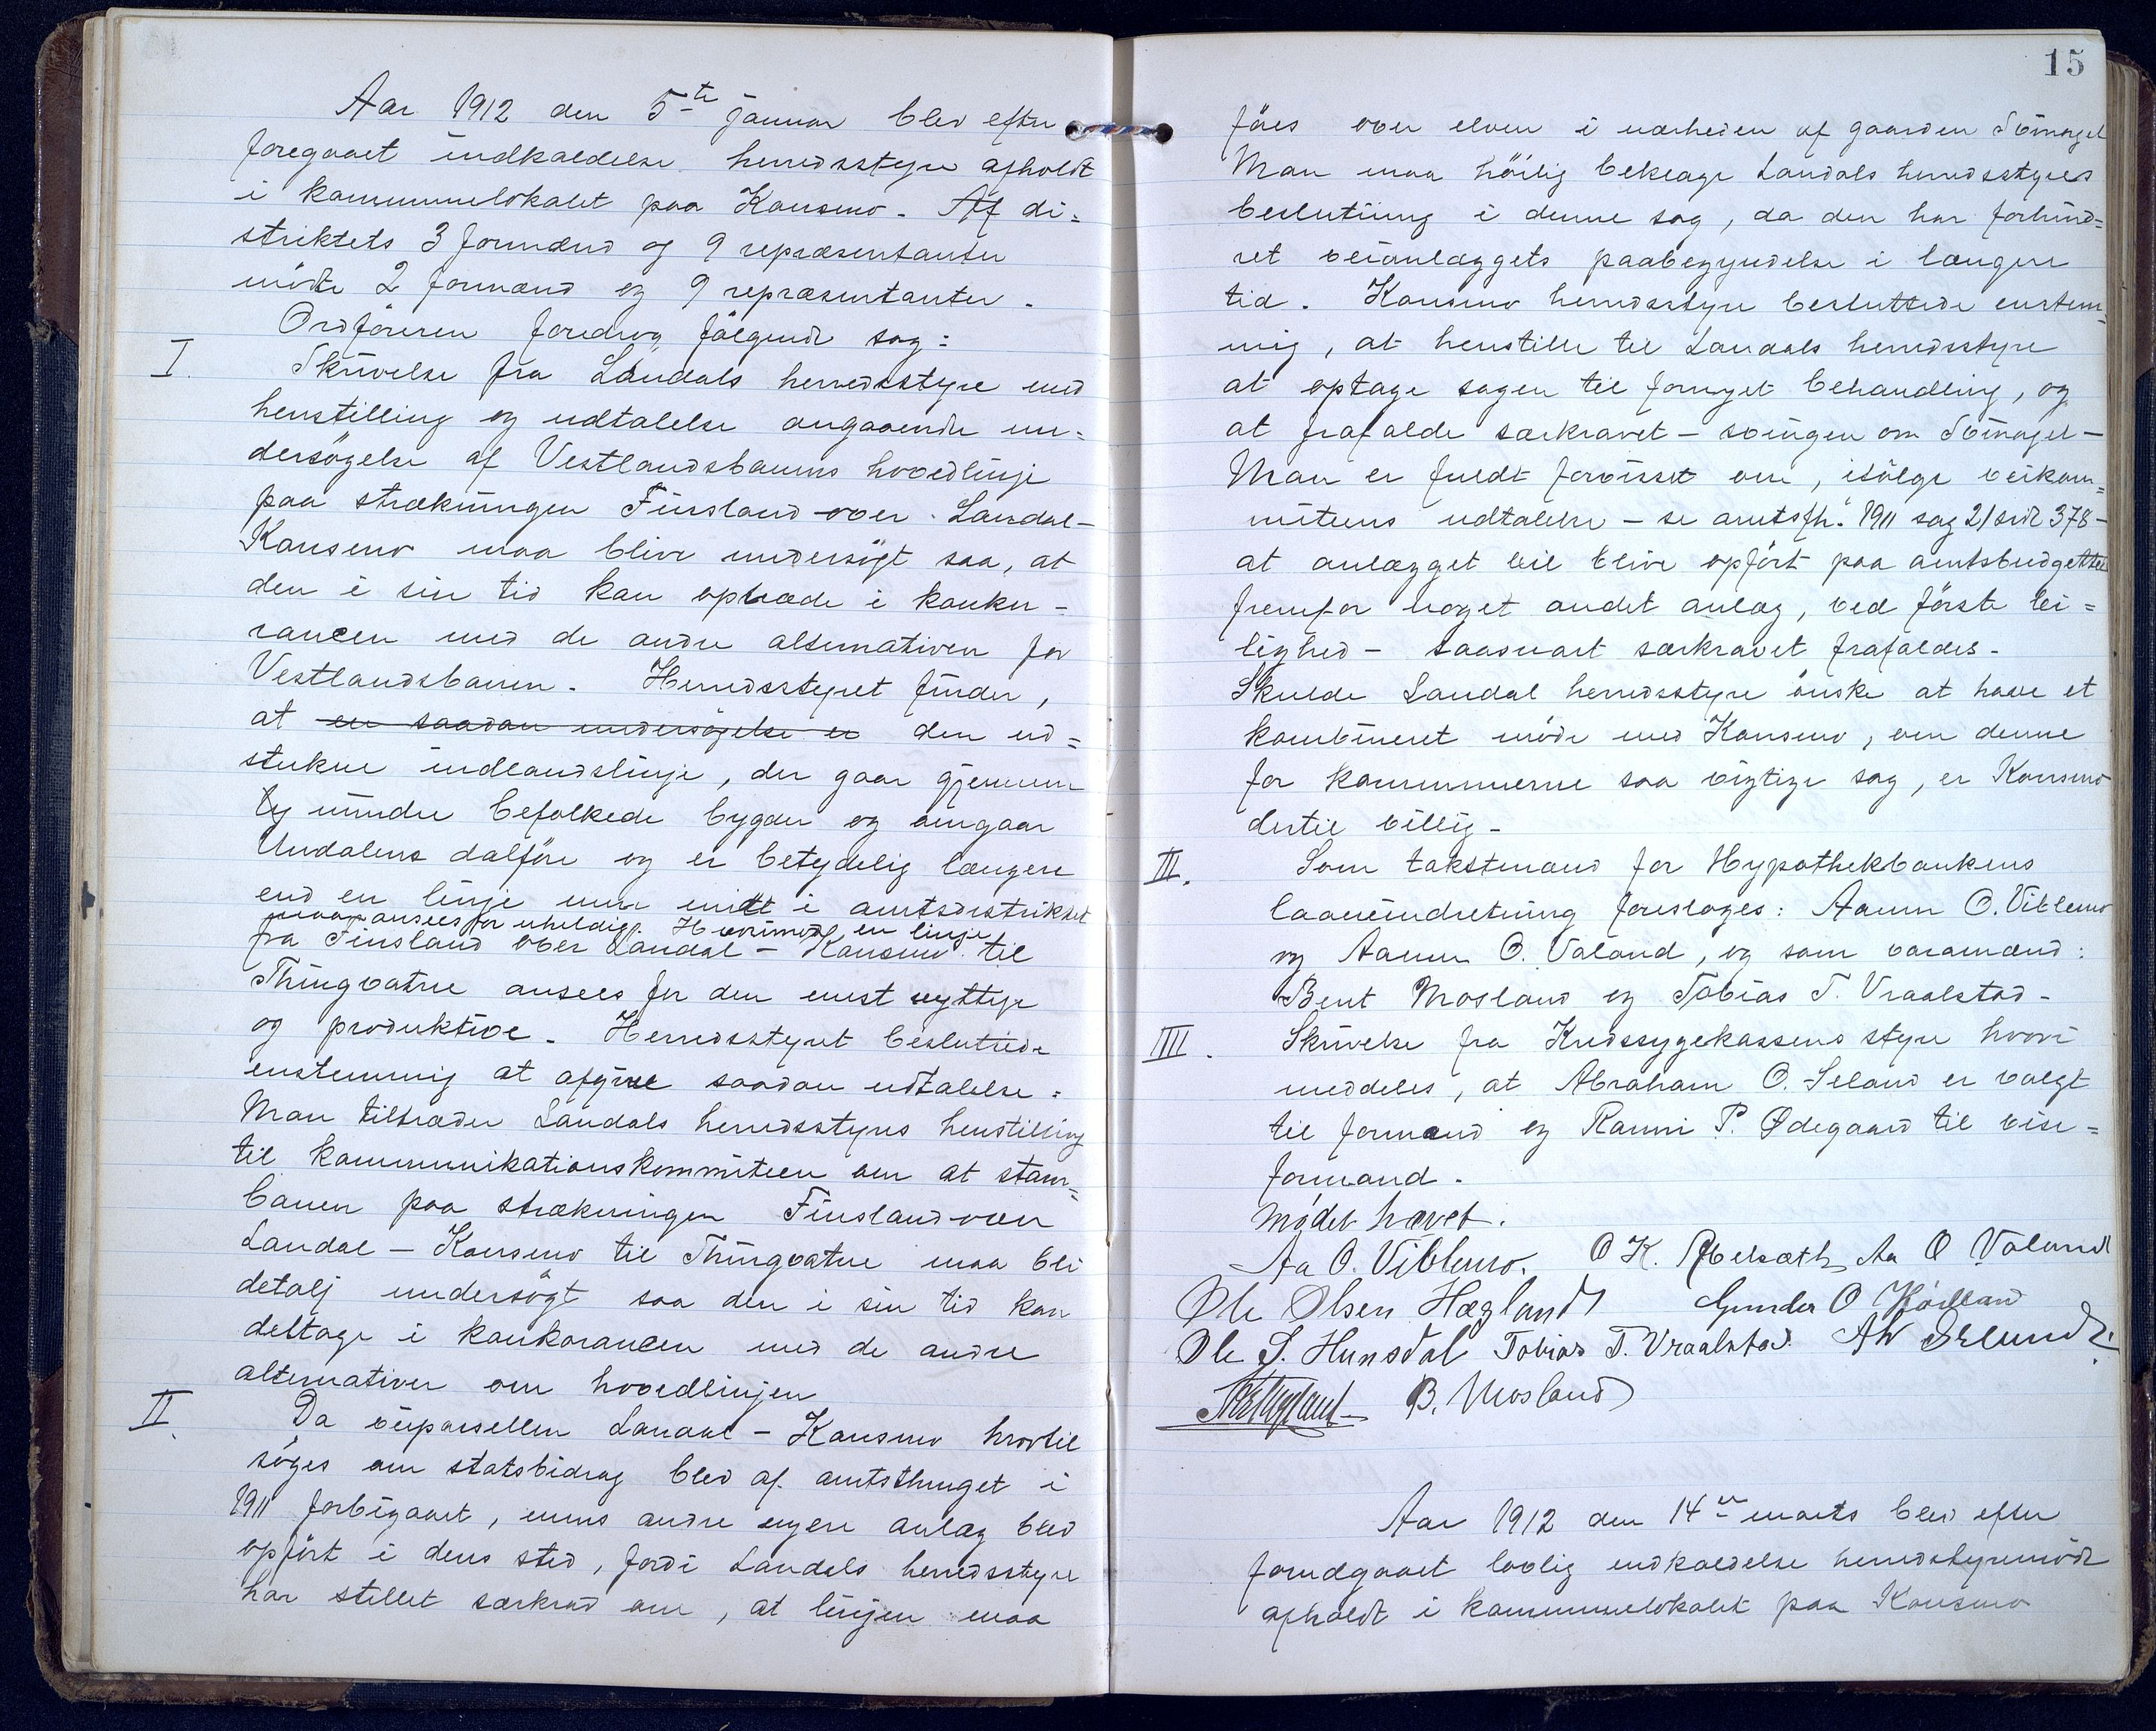 Aar 1912 den 5te januar blev efter
foregaaet indkaldelse herredsstyre afholdt
i kommunelokalet paa Konsmo. Af di=
striktets 3 formænd og 9 repræsentanter
mödte 2 formænd og 9 repræsentanter.
Ordföreren foredrog fölgende sag:
I. Skrivelse fra Laudals herredsstyre med
henstilling og udtalelse angaaende un=
dersögelse af Vestlandsbanens hovedlinje
paa strækningen Finsland over Laudal-
Konsmo maa blive undersögt saa, at
den i sin tid kan optræde i konku-
rancen med de andre alternativer for
Vestlandsbanen. Herredsstyret finder,
at en saadan undersøgelse er den ud=
stukne indlandslinje, der gaar gjennem
ty mindre befolkede bygder og omgaar
Undalens dalföre og er betydelig længere
end en linje mer midt i amtsdistriktet
maa ansees for uheldig. Hvorimod en linje
fra Finsland over Laudal - Konsmo til
Thingvatne ansees for den mest nyttige
og produktive. Herredsstyret besluttede
enstemmig at afgive saadan udtalelse:
Man tiltræder Laudals herredsstyres henstilling
til kommunikationskommiteen om at stam=
banen paa strækningen Finsland over
Laudal - Konsmo til Thingvatne maa bli
detalj undersögt saa den i sin tid kan
deltage i konkurancen med de andre
alternativer om hovedlinjen
II. Da veiparsellen Laudal - Konsmo hvortil
söges om statsbidrag blev af amtsthinget i
1911 forbigaaet, mens andre nyere anlæg blev
opfört i dens sted, fordi Laudals herredsstyre
har stillet særkrav om, at linjen maa
15
föres over elven i nærheden af gaarden Svinagel
Man maa höilig beklage Laudals herredsstyres
beslutning i denne sag, da den har forhind=
ret veianlæggets paabegyndelse i længere
tid. Konsmo herredsstyre besluttede enstem=
mig, at henstille til Laudals herredsstyre
at optage sagen til fornyet behandling, og
at frafalde særkravet - svingen om Svinagel -
Man er fuldt forvisset om, ifölge veikom=
miteens udtalelse - se amtsfh. 1911 sag 21 side 378 -
at anlægget vil blive opfört paa amtsbudgettet
fremfor noget andet anlæg, ved förste lei=
lighed - saasnart særkravet frafaldes.
Skulde Laudal herredsstyre önske at have et
kombineret möde med Konsmo, om denne
for kommunerne saa vigtige sag, er Konsmo
dertil villig.
III. Som takstmænd for Hypothekbankens
laaneindretning foreslages: Aanen O. Viblemo
og Aanen O. Valand, og som varamænd:
Bent Mosland og Tobias T. Vraalstad.
IIII. Skrivelse fra Kredssygekassens styre hvori
meddeles, at Abraham O. Seland er valgt
til formand og Ranni P. Ødegaard til vise=
formand.
Mødet hævet.
Aa O. Viblemo. O K. Abelsæth Aa O Valand
Ole Olsen Hægland Gunder O Kjödland
Ole S. Hunsdal Tobias T. Vraalstad. AW
B. Mosland
Aar 1912 den 14de marts blev efter
forudgaaet lovlig indkaldelse herredsstyremöde
afholdt i kommunelokalet paa Konsmo